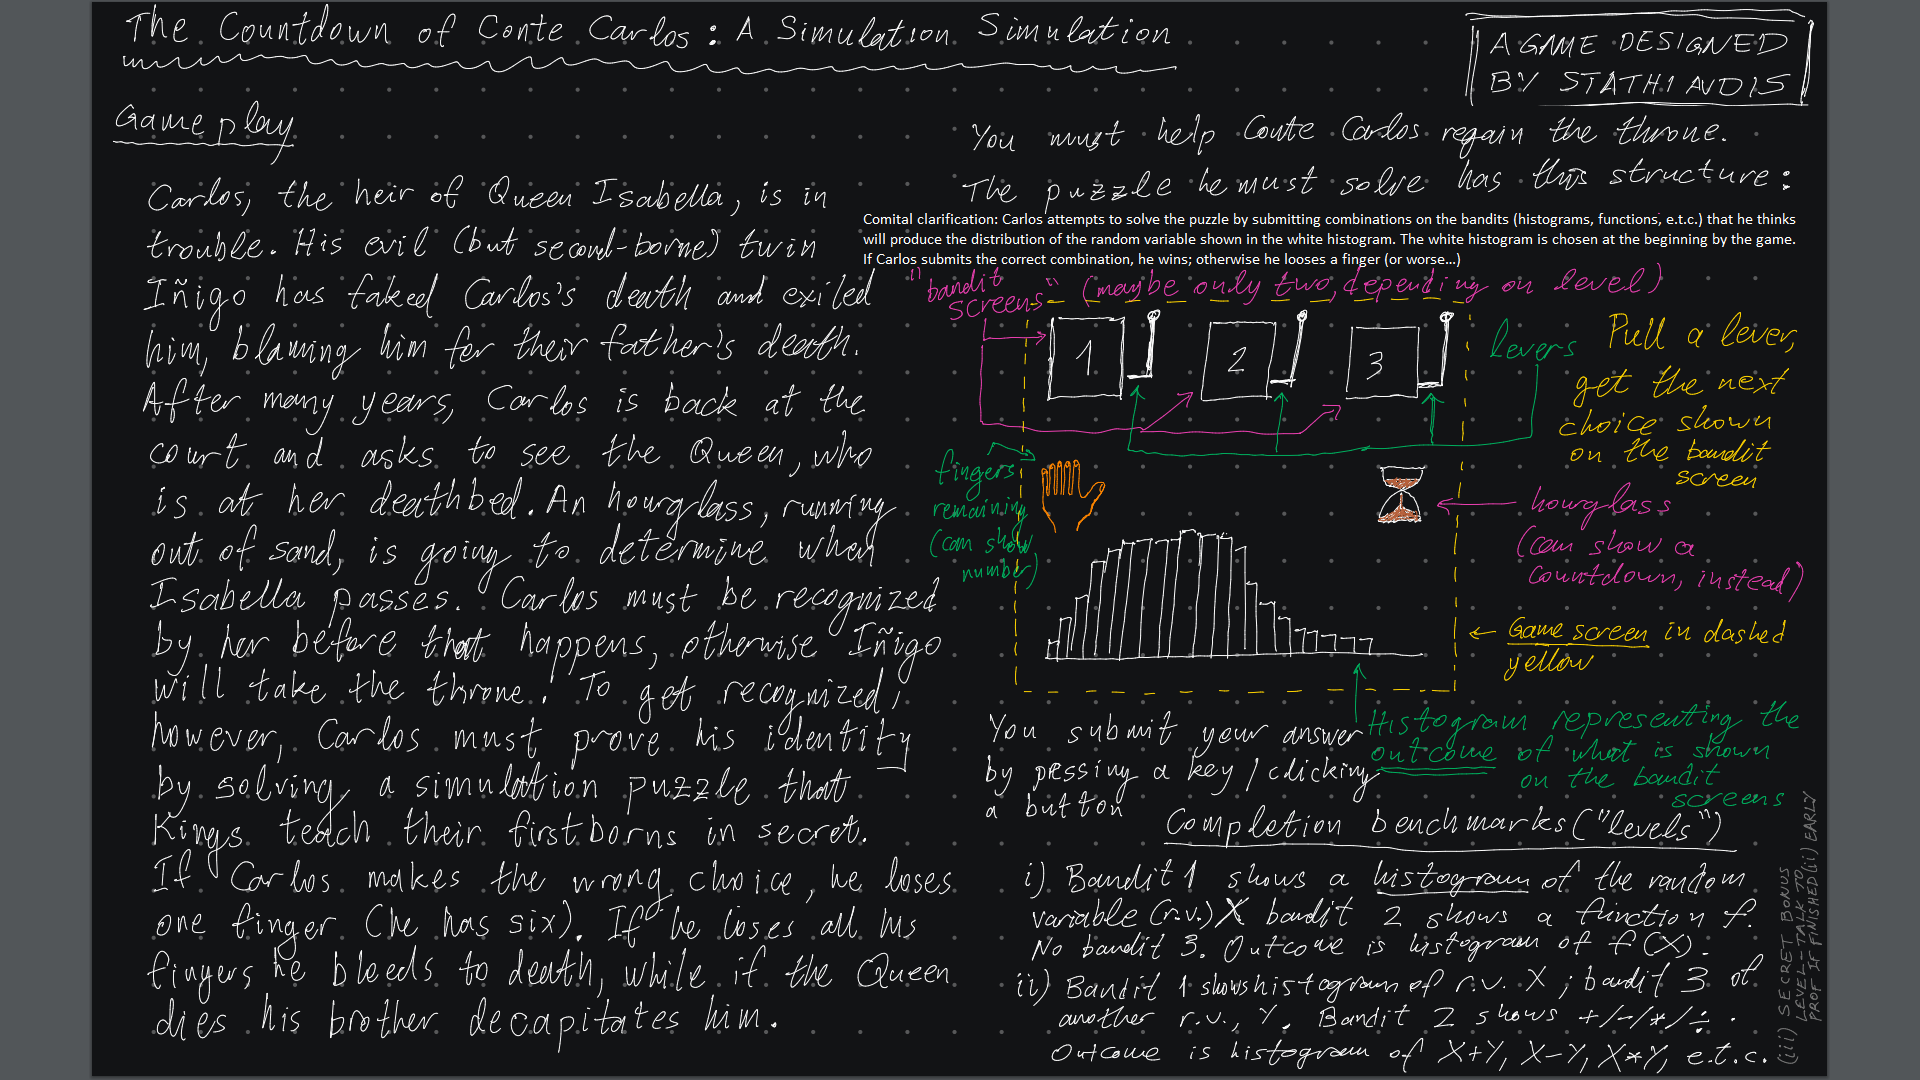 The Countdown of Conte Carlos: A Simulation Simulation
A GAME DESIGNED
BY STATHIAUDIS
Gameplay
Carlos, the heir of Queen Isabella, is in
trouble. His evil (but second-borne) twin
Iñigo has faked Carlos's death and exiled
him, blaming him for their father's death.
After many years, Carlos is back at the
court and asks to see the Queen, who
is at her deathbed. An hourglass, running
out of sand, is going to determine when
Isabella passes. Carlos must be recognized
by her before that happens, otherwise Iñigo
will take the throne. To get recognized,
however, Carlos must prove his identity
by solving a simulation puzzle that
Kings teach their firstborns in secret.
If Carlos makes the wrong choice, he loses
one finger (he has six). If he loses all his
fingers he bleeds to death, while if the Queen
dies his brother decapitates him.
You must help Conte Carlos regain the throne.
The puzzle he must solve has this structure:
Comital clarification: Carlos attempts to solve the puzzle by submitting combinations on the bandits (histograms, functions, e.t.c.) that he thinks
will produce the distribution of the random variable shown in the white histogram. The white histogram is chosen at the beginning by the game.
If Carlos submits the correct combination, he wins; otherwise he looses a finger (or worse...)
"bandit
screens" (maybe only two, depending on level)
1
2
3
levers
Pull a lever,
get the next
choice shown
on the bandit
screen
fingers
remaining
(can show
number)
hourglass
(can show a
countdown, instead)
Game screen in dashed
yellow
Histogram representing the
outcome of what is shown
on the bandit
screens
You submit your answer
by pressing a key/clicking
a button
Completion benchmarks ("levels")
i) Bandit 1 shows a histogram of the random
variable (r.v.) X bandit 2 shows a function f.
No bandit 3. Outcome is histogram of f(X).
ii) Bandit 1 shows histogram of r.v. X ; bandit 3 of
another r.v., Y. Bandit 2 shows +/-/*/÷.
Outcome is histogram of X+Y, X-Y, X*Y, e.t.c.
(iii) SECRET BONUS
LEVEL-TALK TO
PROF IF FINISHED (ii) EARLY